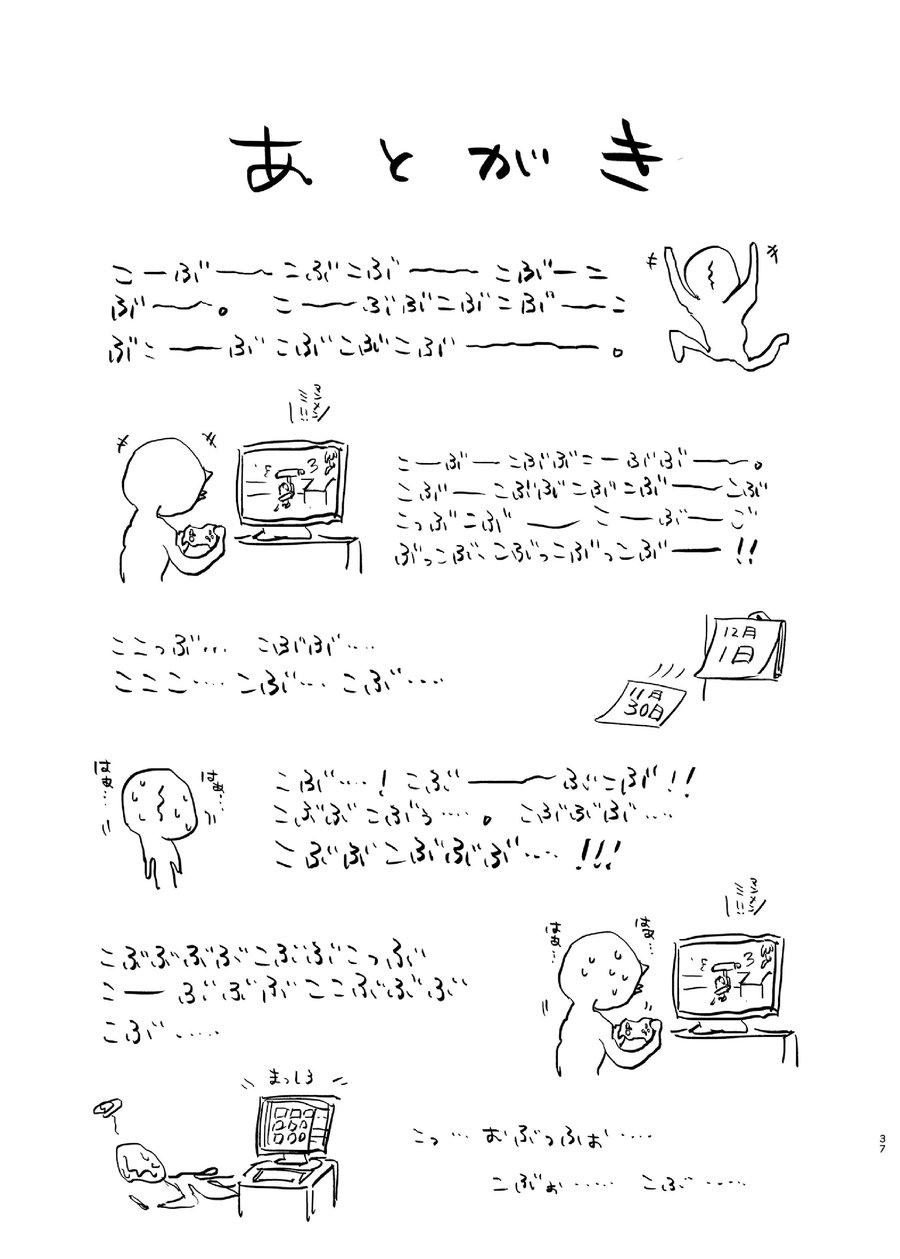 あとがき
こーぶーーこぶこぶーーこぶーこ
ぶーー。こーーぶぶこぶこぶーーこ
ぶこーーぶこぶこぶこぶーーーー。
こーぶーこぶぶこーぶぶーー。
こぶーこぶぶこぶこぶーーこぶ
こっぶこぶーーこーぶーご
ぶっこぶ、こぶっこぶっこぶーー!!
ここっぶ…こぶぶ……
こここ……こぶ…こぶ……
12月
1日
11月
30日
はぁ…
はぁ…
こぶ……!こぶーーーぶこぶ!!
こぶぶこぶぅ……。こぶぶぶ……
こぶぶこぶぶぶ……!!!
はぁ…
はぁ…
こぶぶぶぶこぶぶこっぶ
こーーぶぶぶここぶぶぶ
こぶ……
まっしろ
こっ…おぶっふぉ……
こぶぉ……こぶ……
37